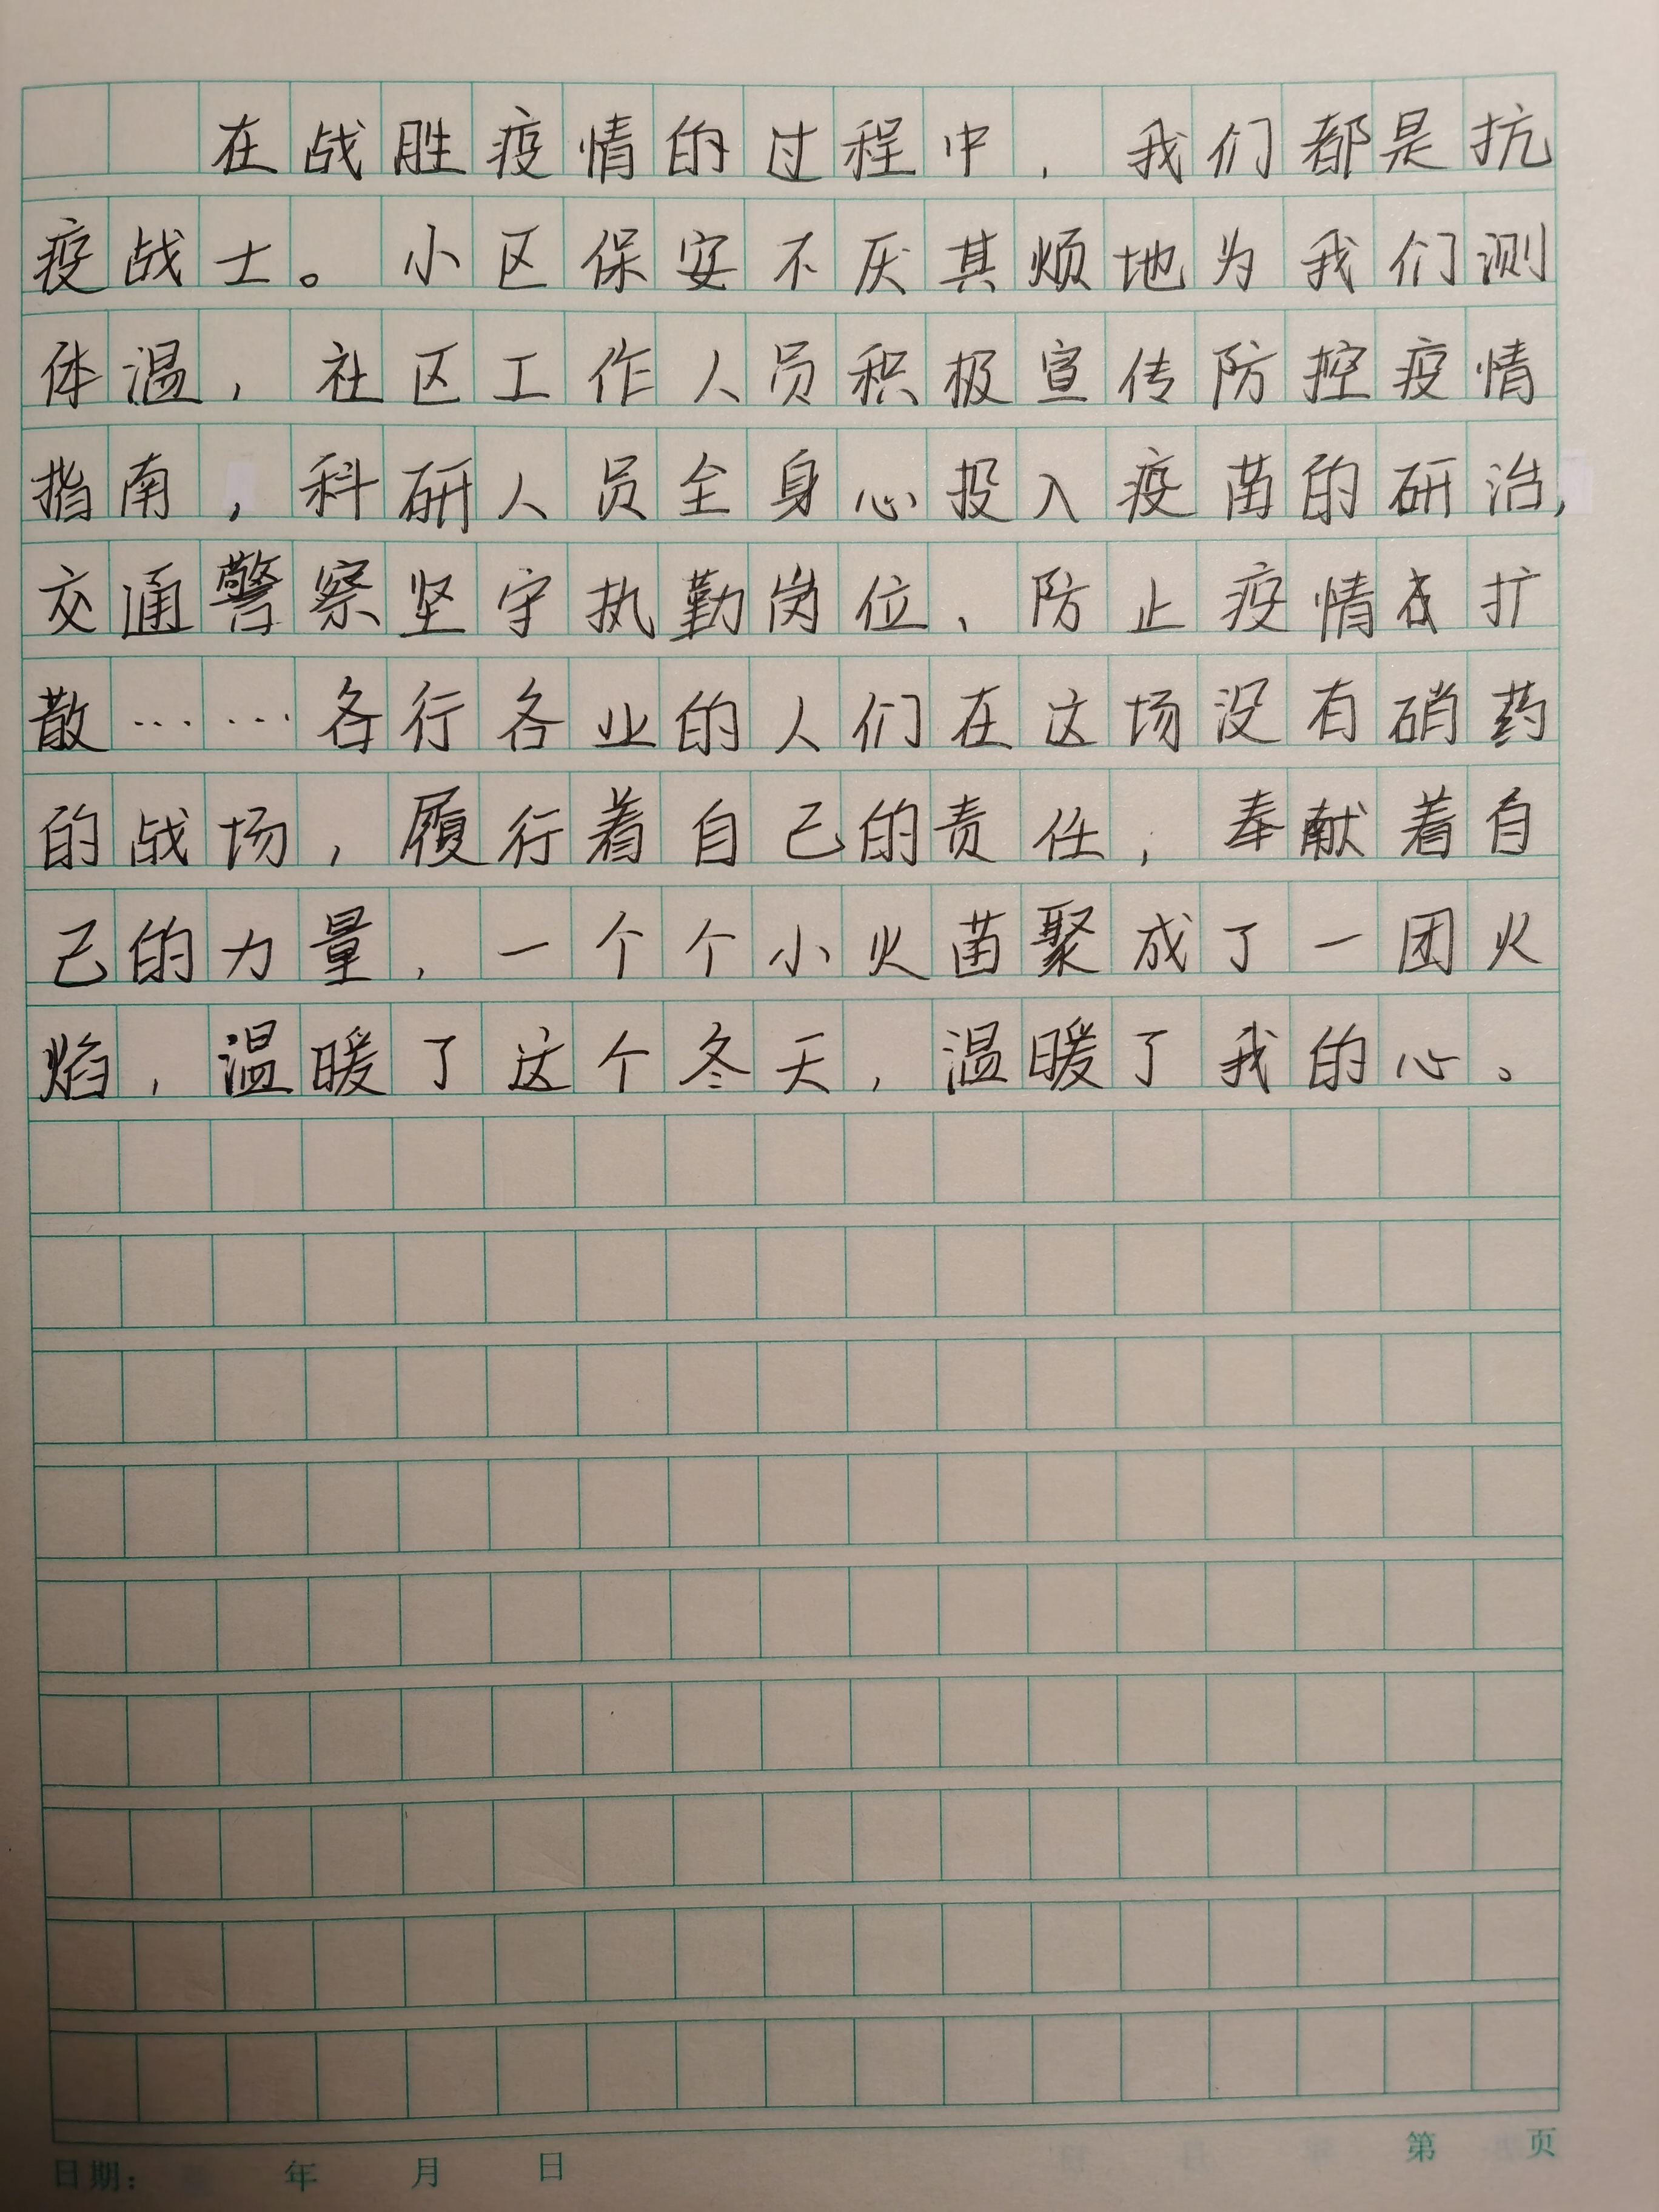 在战胜疫情的过程中，我们都是抗
疫战士。小区保安不厌其烦地为我们测
体温，社区工作人员积极宣传防控疫情
指南，科研人员全身心投入疫苗的研治，
交通警察坚守执勤岗位、防止疫情扩
散……各行各业的人们在这场没有硝药
的战场，履行着自己的责任，奉献着自
己的力量，一个个小火苗聚成了一团火
焰，温暖了这个冬天，温暖了我的心。
日期： 年 月 日 第 页